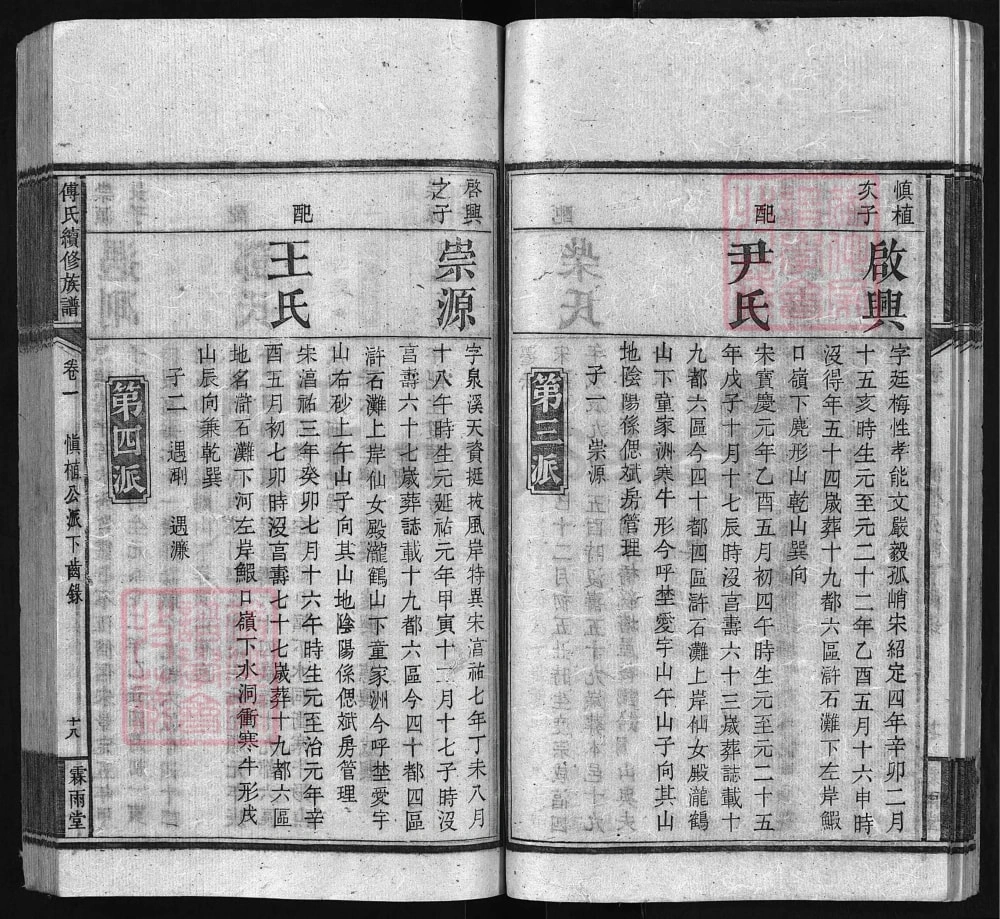 慎植
次子
啟興
字廷梅性孝能文嚴毅孤峭宋紹定四年辛卯二月
十五亥時生元至元二十二年乙酉五月十六申時
沒得年五十四歲葬十九都六區滸石灘下左岸鰕
口嶺下麂形山乾山巽向
配
尹氏
宋寶慶元年乙酉五月初四午時生元至元二十五
年戊子十月十七辰時沒壽六十三歲葬誌載十
九都六區今四十都四區滸石灘上岸仙女殿瀧鶴
山下童家洲寒牛形今呼埜愛宇山午山子向其山
地陰陽係偲斌房管理
子一 崇源
第三派
啓興
之子
崇源
字泉溪天資挺拔風岸特異宋湻祐七年丁未八月
十八午時生元延祐元年甲寅十二月十七子時沒
壽六十七歲葬誌載十九都六區今四十都四區
滸石灘上岸仙女殿瀧鶴山下童家洲今呼埜愛宇
山右砂上午山子向其山地陰陽係偲斌房管理
配
王氏
宋湻祐三年癸卯七月十六午時生元至治元年辛
酉五月初七卯時沒壽七十七歲葬十九都六區
地名滸石灘下河左岸鰕口嶺下水洞衝寒牛形戌
山辰向兼乾巽
子二 遇 遇濂
第四派
傅氏續修族譜
卷一
慎植公派下齒錄
十八
霖雨堂